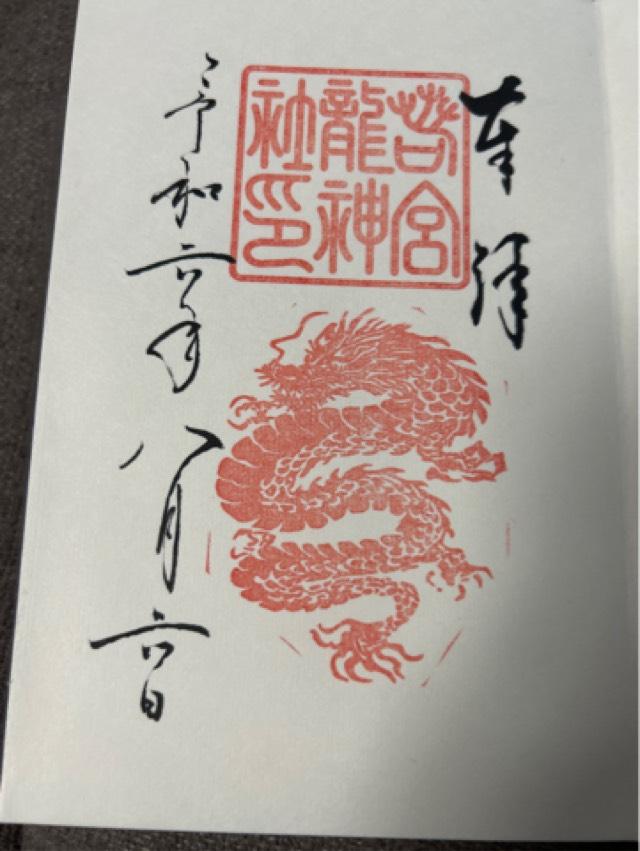 奉拝
若宮
龍神
社印
令和六年八月六日